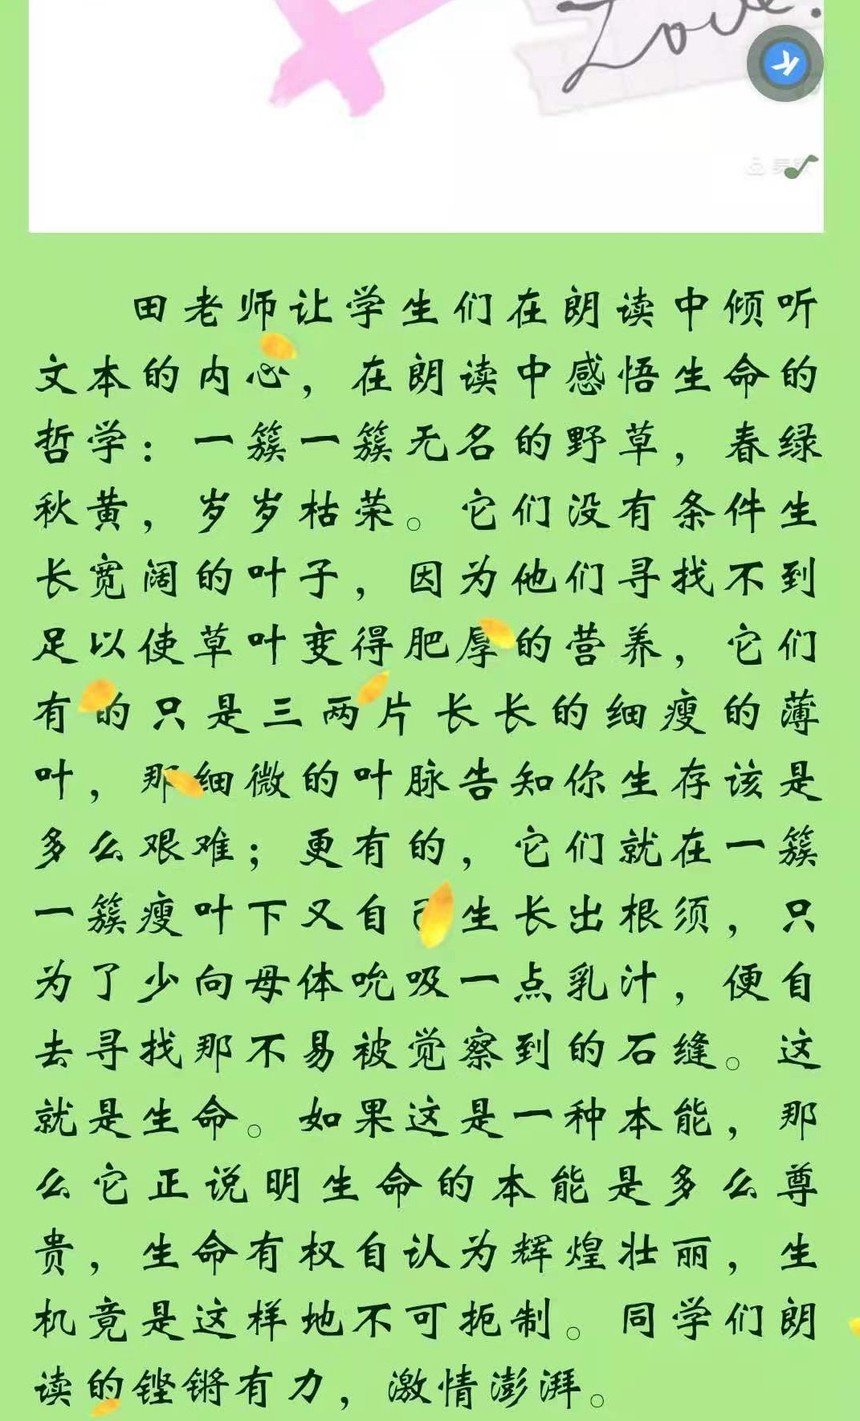 Love.
田老师让学生们在朗读中倾听
文本的内心，在朗读中感悟生命的
哲学：一簇一簇无名的野草，春绿
秋黄，岁岁枯荣。它们没有条件生
长宽阔的叶子，因为他们寻找不到
足以使草叶变得肥厚的营养，它们
有的只是三两片长长的细瘦的薄
叶，那细微的叶脉告知你生存该是
多么艰难；更有的，它们就在一簇
一簇瘦叶下又自己生长出根须，只
为了少向母体吮吸一点乳汁，便自
去寻找那不易被觉察到的石缝。这
就是生命。如果这是一种本能，那
么它正说明生命的本能是多么尊
贵，生命有权自认为辉煌壮丽，生
机竟是这样地不可扼制。同学们朗
读的铿锵有力，激情澎湃。